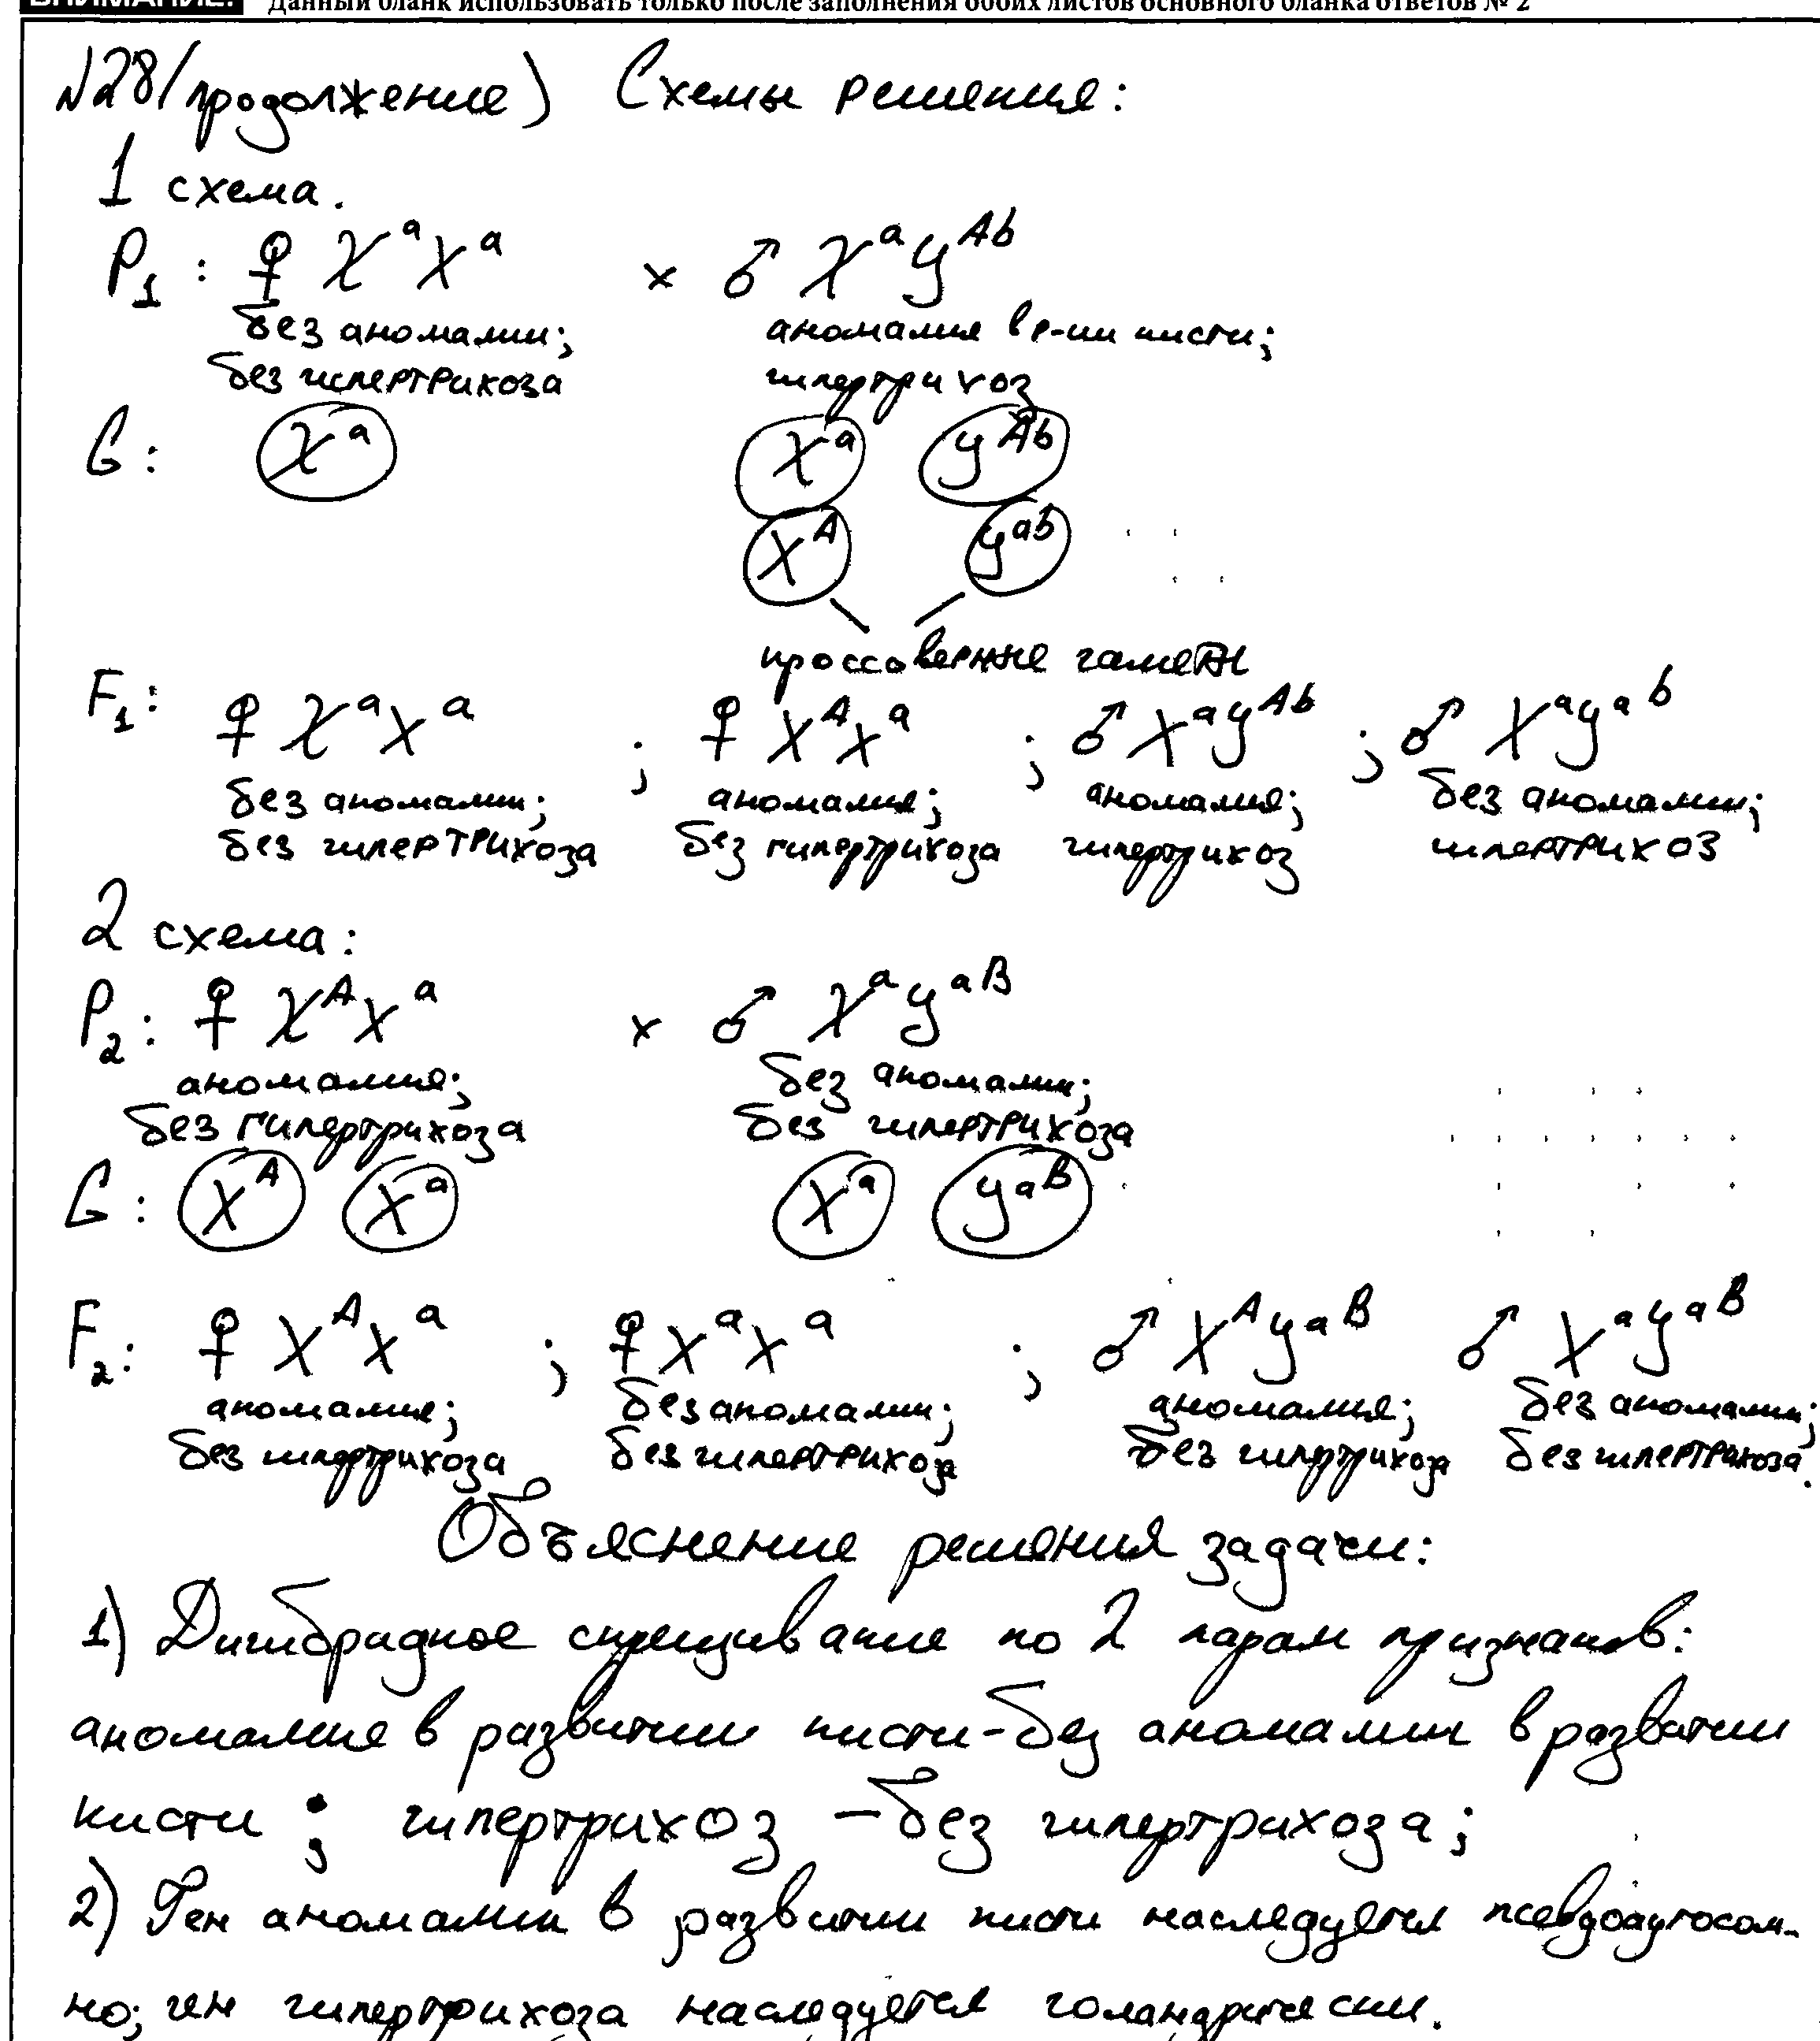 ВНИМАНИЕ! Данный бланк использовать только после заполнения обоих листов основного бланка ответов № 2
№28(продолжение) Схемы решения:
1 схема.
P₁: ♀ XᵃXᵃ × ♂ XᵃYᴬᵇ
без аномалии; аномалия в р-ии кисти;
без гипертрихоза гипертрихоз
G: Xᵃ Xᵃ Yᴬᵇ
Xᴬ Yᵃᵇ
кроссоверные гаметы
F₁: ♀ XᵃXᵃ ; ♀ XᴬXᵃ ; ♂ XᵃYᴬᵇ ; ♂ XᵃYᵃᵇ
без аномалии; аномалия; аномалия; без аномалии;
без гипертрихоза без гипертрихоза гипертрихоз гипертрихоз
2 схема:
P₂: ♀ XᴬXᵃ × ♂ XᵃYᵃᴮ
аномалия; без аномалии;
без гипертрихоза без гипертрихоза
G: Xᴬ Xᵃ Xᵃ Yᵃᴮ
F₂: ♀ XᴬXᵃ ; ♀ XᵃXᵃ ; ♂ XᴬYᵃᴮ ♂ XᵃYᵃᴮ
аномалия; без аномалии; аномалия; без аномалии;
без гипертрихоза без гипертрихоза без гипертрихоза без гипертрихоза.
Объяснение решения задачи:
1) Дигибридное скрещивание по 2 парам признаков:
аномалия в развитии кисти - без аномалии в развитии
кисти ; гипертрихоз - без гипертрихоза;
2) Ген аномалии в развитии кисти наследуется псевдоаутосом-
но; ген гипертрихоза наследуется голандрически.